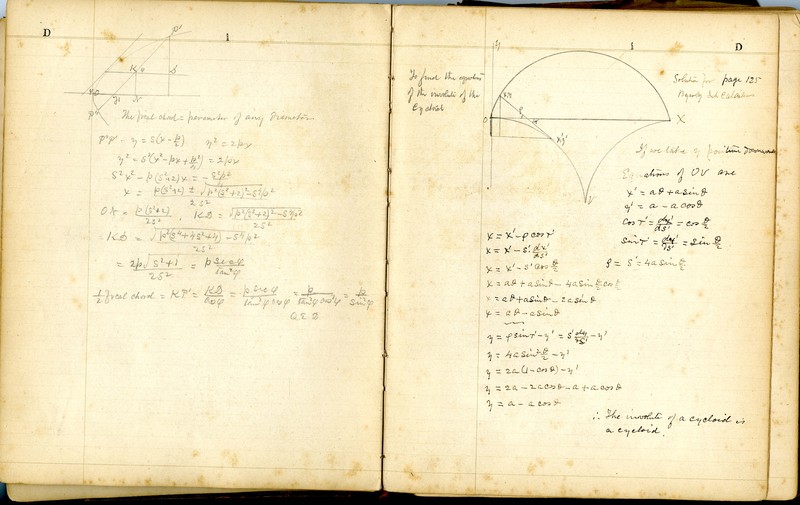 D
1
P'
K
S
N
P''
The focal chord = parameter of any Diameter
y² = 2px
y² = s²(x² - px + p²/4) = 2px
s²x² - p(s²+2)x = - s²p²/4
x = p(s²+2) ± √p²(s²+2)² - s⁴p² / 2s²
OA = p(s²+2)/2s² , KD = √p²(s²+2)² - s⁴p² / 2s²
KD = √p²(s⁴+4s²+4) - s⁴p² / 2s²
= 2p√s²+1 / 2s² = p sec φ / tan² φ
½ focal chord = KP' = KD / cos φ = p sec φ / tan² φ cos φ = p / tan² φ cos² φ = p / sin² φ
Q.E.D
1
D
To find the equation
of the involute of the
Cycloid
Y
O
X
x'y'
V
Solution for page 125
Calculus
If we take y positive downwards
Equations of OV are
x' = aθ + a sin θ
y' = a - a cos θ
cos τ' = dx'/ds' = cos θ/2
sin τ' = dy'/ds' = sin θ/2
ρ = s' = 4a sin θ/2
x = x' - ρ cos τ'
x = x' - s' dx'/ds'
x = x' - s' cos θ/2
x = aθ + a sin θ - 4a sin θ/2 cos θ/2
x = aθ + a sin θ - 2a sin θ
x = aθ - a sin θ
y = ρ sin τ' - y' = s' dy'/ds' - y'
y = 4a sin² θ/2 - y'
y = 2a(1 - cos θ) - y'
y = 2a - 2a cos θ - a + a cos θ
y = a - a cos θ
∴ The involute of a cycloid is
a cycloid.